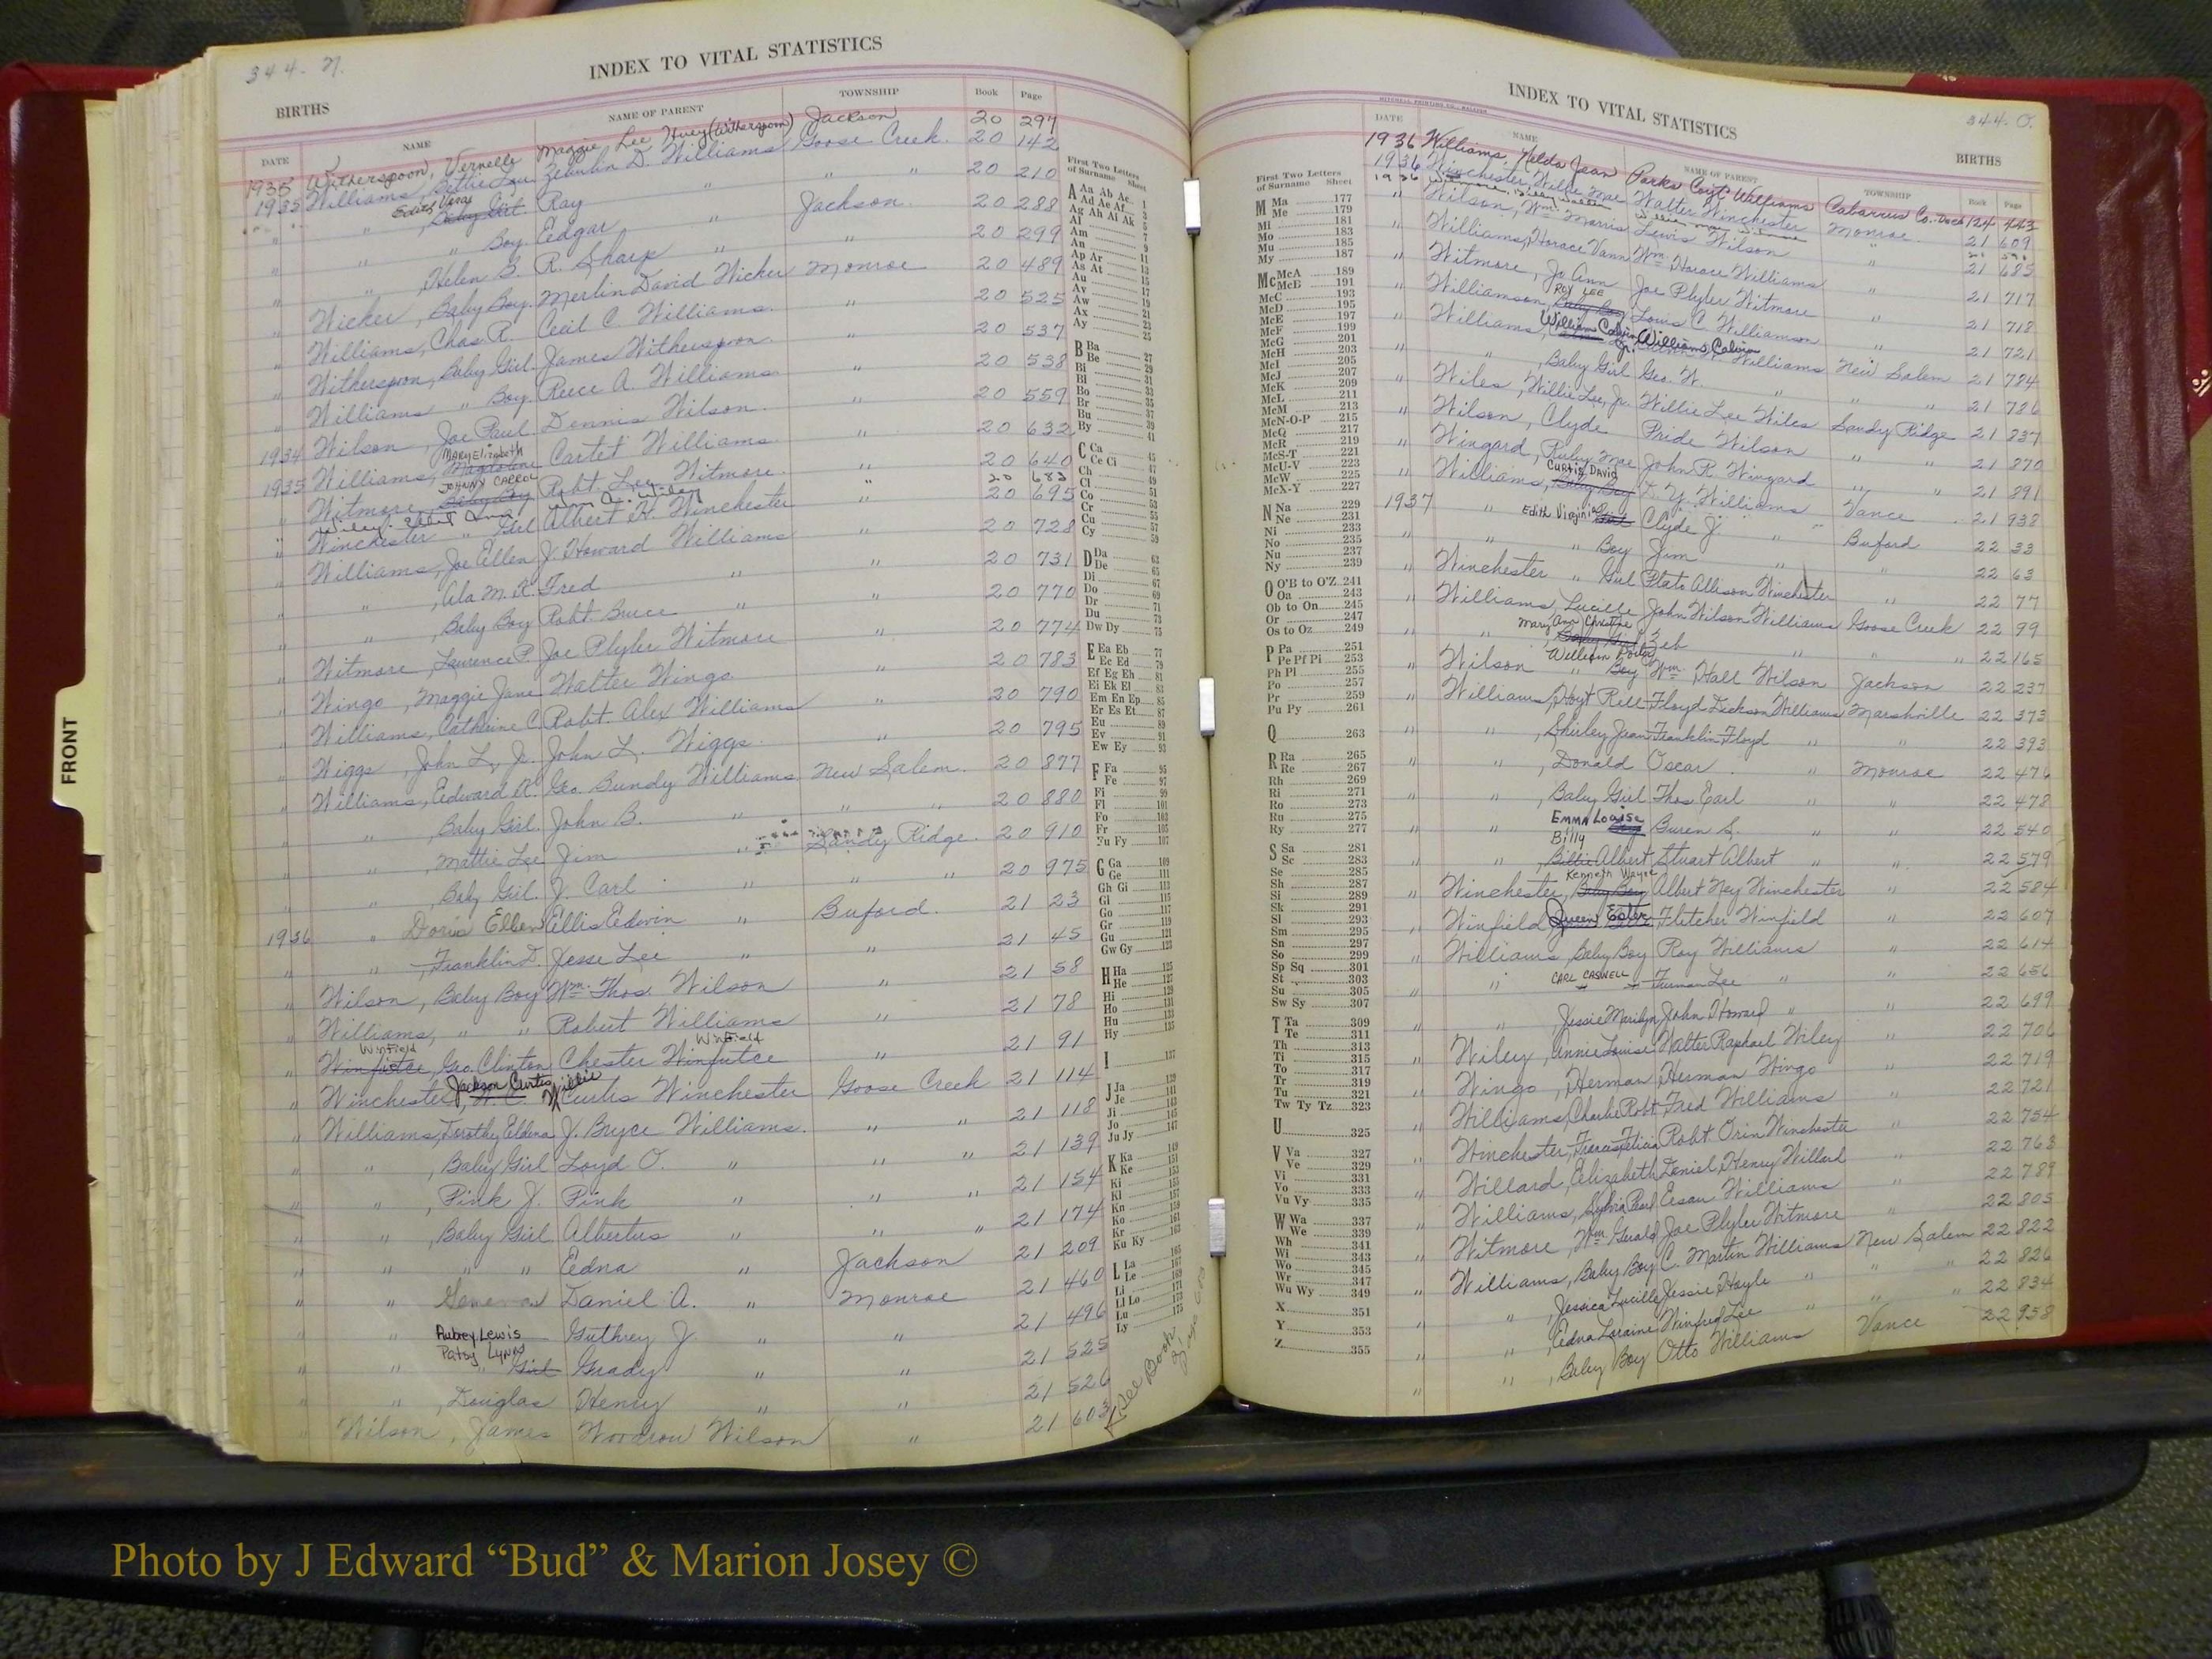 344-N.
INDEX TO VITAL STATISTICS
BIRTHS
DATE NAME NAME OF PARENT TOWNSHIP Book Page
1935 Witherspoon, Vernelle Maggie Lee Huey (Witherspoon) Jackson 20 297
1935 Williams, Bettie Lou Zebulin D. Williams Goose Creek 20 142
Edith Vera
" " , Baby Girl Ray " " " 20 210
" " " Boy Edgar " Jackson 20 288
" " , Helen S. R. Sharp " " 20 299
" Wicker, Baby Boy Merlin David Wicker Monroe 20 489
" Williams, Chas R. Cecil C. Williams " 20 525
" Witherspoon, Baby Girl James Witherspoon " 20 537
" Williams " Boy Reece A. Williams " 20 538
" Wilson, Joe Paul Dennis Wilson " 20 559
MARY Elizabeth
1934 Williams, Magdalene Carter Williams " 20 632
JOHNNY CARROL
1935 Witmore, Baby Boy Robt. Lee Witmore " 20 640
" 20 683
" Winchester " Girl Albert H. Winchester " 20 695
" Williams, Joe Ellen J. Howard Williams " 20 728
" " , Ala M. R. Fred " " 20 731
" " , Baby Boy Robt Bruce " " 20 770
" Witmore, Laurence P. Joe Plyler Witmore " 20 774
" Wingo, Maggie Jane Walter Wingo " 20 783
" Williams, Catherine C. Robt. Alex Williams " 20 790
" Wiggs, John L. Jr. John L. Wiggs " 20 795
" Williams, Edward R. Geo. Bundy Williams New Salem 20 877
" " , Baby Girl John B. " " " 20 880
" " , Mattie Lee Jim " Sandy Ridge 20 910
" " , Baby Girl J. Carl " " " 20 975
1936 " Doris Ellen Ellis Edwin " Buford 21 23
" " , Franklin D. Jesse Lee " " 21 45
" Wilson, Baby Boy Wm. Thos. Wilson " 21 58
" Williams, " " Robert Williams " 21 78
Winfield Winfield
" Winfutce, Geo. Clinton Chester Winfutce " 21 91
Jackson Curtis Willie
" Winchester, W. C. Curtis Winchester Goose Creek 21 114
" Williams, Dorothy Eldena J. Bryce Williams " " 21 118
" " , Baby Girl Loyd O. " " " 21 139
" " , Pink J. Pink " " " 21 154
" " , Baby Girl Albertus " " " 21 174
" " " " Edna " Jackson 21 209
" " Daniel A. " Monroe 21 460
" " Aubrey Lewis Guthrey J. " " 21 496
Patsy LYNN
" " " Girl Grady " " 21 525
" " , Douglas Henry " " 21 526
" Wilson, James Woodrow Wilson " 21 603
See Book
First Two Letters
of Surname Sheet
A Aa Ab Ac 1
Ad Ae Af 3
Ag Ah Ai Ak 5
Al 7
Am 9
An 11
Ap Ar 13
As At 15
Au 17
Av 19
Aw 21
Ax 23
Ay 25
B Ba 27
Be 29
Bi 31
Bl 33
Bo 35
Br 37
Bu 39
By 41
C Ca 45
Ce Ci 47
Ch 49
Cl 51
Co 53
Cr 55
Cu 57
Cy 59
D Da 63
De 65
Di 67
Do 69
Dr 71
Du 73
Dw Dy 75
E Ea Eb 77
Ec Ed 79
Ef Eg Eh 81
Ei Ek El 83
Em En Ep 85
Er Es Et 87
Eu 89
Ev 91
Ew Ey 93
F Fa 95
Fe 97
Fi 99
Fl 101
Fo 103
Fr 105
Fu Fy 107
G Ga 109
Ge 111
Gh Gi 113
Gl 115
Go 117
Gr 119
Gu 121
Gw Gy 123
H Ha 125
He 127
Hi 129
Ho 131
Hu 133
Hy 135
I 137
J Ja 139
Je 141
Ji 143
Jo 145
Ju Jy 147
K Ka 149
Ke 151
Ki 153
Kl 155
Kn 157
Ko 159
Kr 161
Ku Ky 163
L La 165
Le 167
Li 169
Ll Lo 171
Lu 173
Ly 175
INDEX TO VITAL STATISTICS
344-O.
BIRTHS
DATE NAME NAME OF PARENT TOWNSHIP Book Page
1936 Williams, Nelda Jean Parks Cort Williams Cabarrus Co. 124 443
1936 Winchester, Willie Mae Walter Winchester Monroe 21 609
1936
" Wilson, Wm. Morris Lewis Wilson " 21 685
" Williams, Horace Vann Wm. Horace Williams " 21 717
" Witmore, Jo Ann Joe Plyler Witmore " 21 718
ROY LEE
" Williamson, Baby Boy Louis C. Williamson " 21 721
William Calvin Jr. Williams, Calvin
" Williams, Williams New Salem 21 784
" " , Baby Girl Geo. W. " " " 21 786
" Wiles, Willie Lee, Jr. Willie Lee Wiles Sandy Ridge 21 837
" Wilson, Clyde Pride Wilson " " 21 870
" Wingard, Ruby Mae John R. Wingard " " 21 891
Curtis David
" Williams, Baby Boy D. Y. Williams Vance 21 938
1937 " Edith Virginia Girl Clyde J. " Buford 22 33
" " " Boy Jim " " 22 63
" Winchester " Girl Plato Allison Winchester " 22 77
" Williams, Lucille John Wilson Williams Goose Creek 22 99
Mary Ann Christine
" " , Baby Girl Zeb " " " 22 165
William Porter
" Wilson " Boy Wm. Hall Wilson Jackson 22 237
" Williams, Hoyt Rell Floyd Dickson Williams Marshville 22 373
" " , Shirley Jean Franklin Floyd " " 22 393
" " , Donald Oscar " Monroe 22 476
" " , Baby Girl Thos Earl " " 22 478
" " EMMA Louise Buren S. " " 22 540
Billy
" " , Billie Albert Stuart Albert " " 22 579
Kenneth Wayne
" Winchester, Baby Boy Albert Ney Winchester " 22 584
" Winfield, Queen Ester Fletcher Winfield " 22 607
" Williams, Baby Boy Roy Williams " 22 614
" " CARL CASWELL Furman Lee " " 22 656
" " , Jessie Marilyn John Howard " " 22 699
" Wiley, Annie Louise Walter Raphael Wiley " 22 706
" Wingo, Herman Herman Wingo " 22 719
" Williams, Charlie Robt. Fred Williams " 22 721
" Winchester, Frances Felicia Robt. Orin Winchester " 22 754
" Willard, Elizabeth Daniel Henry Willard " 22 763
" Williams, Sylvia Pearl Esau Williams " 22 789
" Witmore, Wm. Gerald Joe Plyler Witmore " 22 805
" Williams, Baby Boy C. Martin Williams New Salem 22 822
" " , Jessica Lucille Jessie Hoyle " " " 22 826
" " , Edna Loraine Winfred Lee " " " 22 834
" " , Baby Boy Otto Williams Vance 22 958
First Two Letters
of Surname Sheet
M Ma 177
Me 179
Mi 181
Mo 183
Mu 185
My 187
Mc McA 189
McB 191
McC 193
McD 195
McE 197
McF 199
McG 201
McH 203
McI 205
McJ 207
McK 209
McL 211
McM 213
McN-O-P 215
McQ 217
McR 219
McS-T 221
McU-V 223
McW 225
McX-Y 227
N Na 229
Ne 231
Ni 233
No 235
Nu 237
Ny 239
O O'B to O'Z 241
Oa 243
Ob to On 245
Or 247
Os to Oz 249
P Pa 251
Pe Pf Pi 253
Ph Pl 255
Po 257
Pr 259
Pu Py 261
Q 263
R Ra 265
Re 267
Rh 269
Ri 271
Ro 273
Ru 275
Ry 277
S Sa 281
Sc 283
Se 285
Sh 287
Si 289
Sk 291
Sl 293
Sm 295
Sn 297
So 299
Sp Sq 301
St 303
Su 305
Sw Sy 307
T Ta 309
Te 311
Th 313
Ti 315
To 317
Tr 319
Tu 321
Tw Ty Tz 323
U 325
V Va 327
Ve 329
Vi 331
Vo 333
Vu Vy 335
W Wa 337
We 339
Wh 341
Wi 343
Wo 345
Wr 347
Wu Wy 349
X 351
Y 353
Z 355
FRONT
Photo by J Edward “Bud” & Marion Josey ©